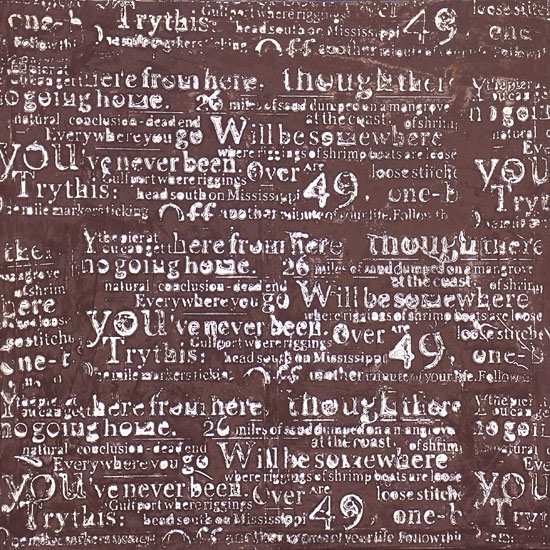 one-b Trythis: Gulfport where riggings 49, one
Followth ommilemarkersticking Off another minute of your life. Followth
Youcanget here from here, though there
nogoinghome. 26 miles of sand dumped on a mangrove
natural conclusion-dead end at the coast. ofshrim
Everywhere you go Will be somewhere
you've never been. Over where riggings of shrimp boats are loose
Gulfport where riggings loose stitch
Trythis: head south on Mississippi 49, one-b
mile markers ticking Off another minute of your life. Followth
the pier at
there Youcanget here from here though there
nogoinghome. 26 miles of sand dumped on a mangrove
natural conclusion-dead end at the coast. ofshrim
Everywhere you go Will be somewhere
you've never been. Over where riggings of shrimp boats are loose
Gulfport where riggings loose stitch
Trythis: head south on Mississippi 49, one-
Onemile markers ticking Off another minute of your life. Follow
Y the pier at
oucanget here from here, though there
nogoinghome. 26 miles of sand dumped on a mangrove
natural conclusion-dead end at the coast. ofshrim
Everywhere you go Will be somewhere
you've never been. Over where riggings of shrimp boats are loose
Gulfport where riggings loose stitch
Trythis: head south on Mississippi 49, one-b
mile markers ticking Off another minute of your life. Followth